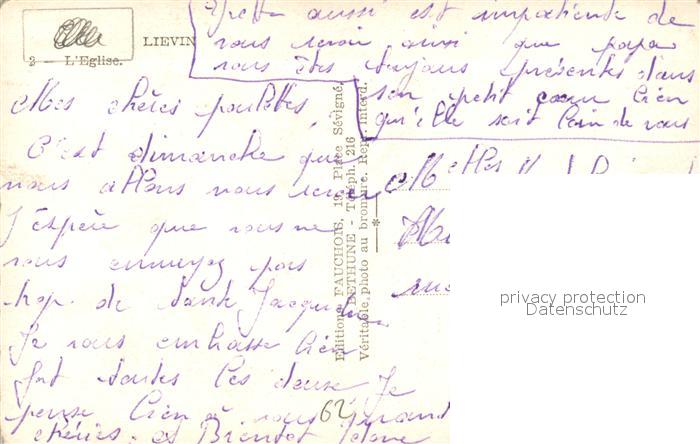 LIEVIN
2 - L'Eglise.
Yvette aussi est impatiente de
vous revoir ainsi que papa
vous êtes toujours présentes dans
son petit cœur bien
qu'elle soit loin de vous
Mes chères poulettes,
C'est dimanche que
nous allons nous revoir
J'espère que vous ne
vous ennuyez pas
trop. de tante Jacqueline
Je vous embrasse bien
fort toutes les deux Je
pense bien à vous
chéries et Bientôt
Editions FAUCHOIS, 19, Place Sévigné,
BÉTHUNE - Téléph. 216
Véritable photo au bromure. Repr. interd.
Melles
62
privacy protection
Datenschutz